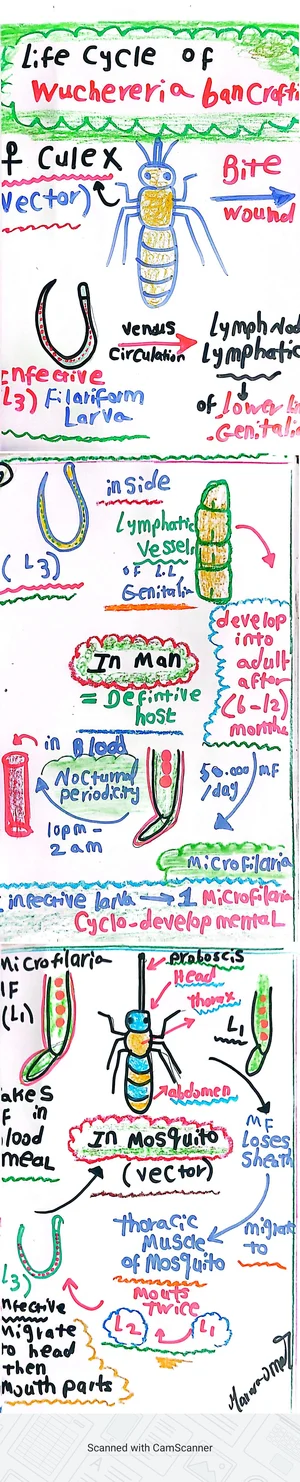 Life Cycle of
Wuchereria bancrofti
♀ Culex
Vector)
Bite
wound
venus
circulation
Lymph Nod
Lymphatic
of Lower Li
Genitalia
Infective
L3) Filariform
Larva
(L3)
inside
Lymphatic
Vessels
of L.L
Genitalia
develop
into
adult
after
(6-12)
months
In Man
= Defintive
host
in Blood
Nocturnal
periodicity
10pm-
2am
50.000 MF
/day
Microfilaria
infective larva → 1 Microfilaria
Cyclo-developmental
Microfilaria
(L1)
proboscis
Head
thorax
abdomen
L1
akes
F in
lood
meal
In Mosquito
(vector)
MF
Loses
Sheath
migrate
to
thoracic
Muscle
of Mosquito
Mouts
twice
L2
L1
L3)
nfective
Migrate
to head
then
Mouth parts
Scanned with CamScanner